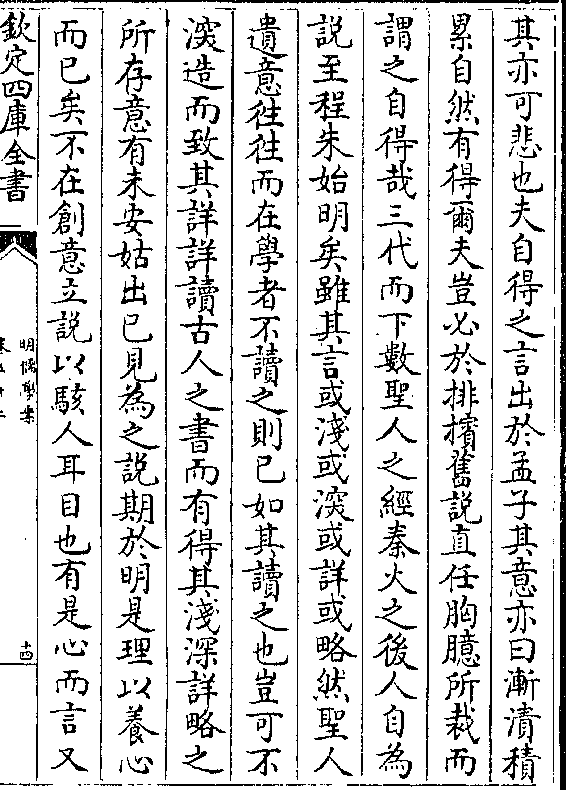 其亦可悲也夫自得之言出於孟子其意亦曰漸漬積
累自然有得爾夫豈必於排擯舊說直任胸臆所裁而
謂之自得哉三代而下數聖人之經秦火之後人自為
說至程朱始明矣雖其言或淺或深或詳或略然聖人
遺意徃徃而在學者不讀之則已如其讀之也豈可不
深造而致其詳詳讀古人之書而有得其淺深詳略之
所存意有未安姑出已見為之說期於明是理以養心
而已矣不在創意立說以駭人耳目也有是心而言又
欽定四庫全書
明儒學案
卷五十二
十四